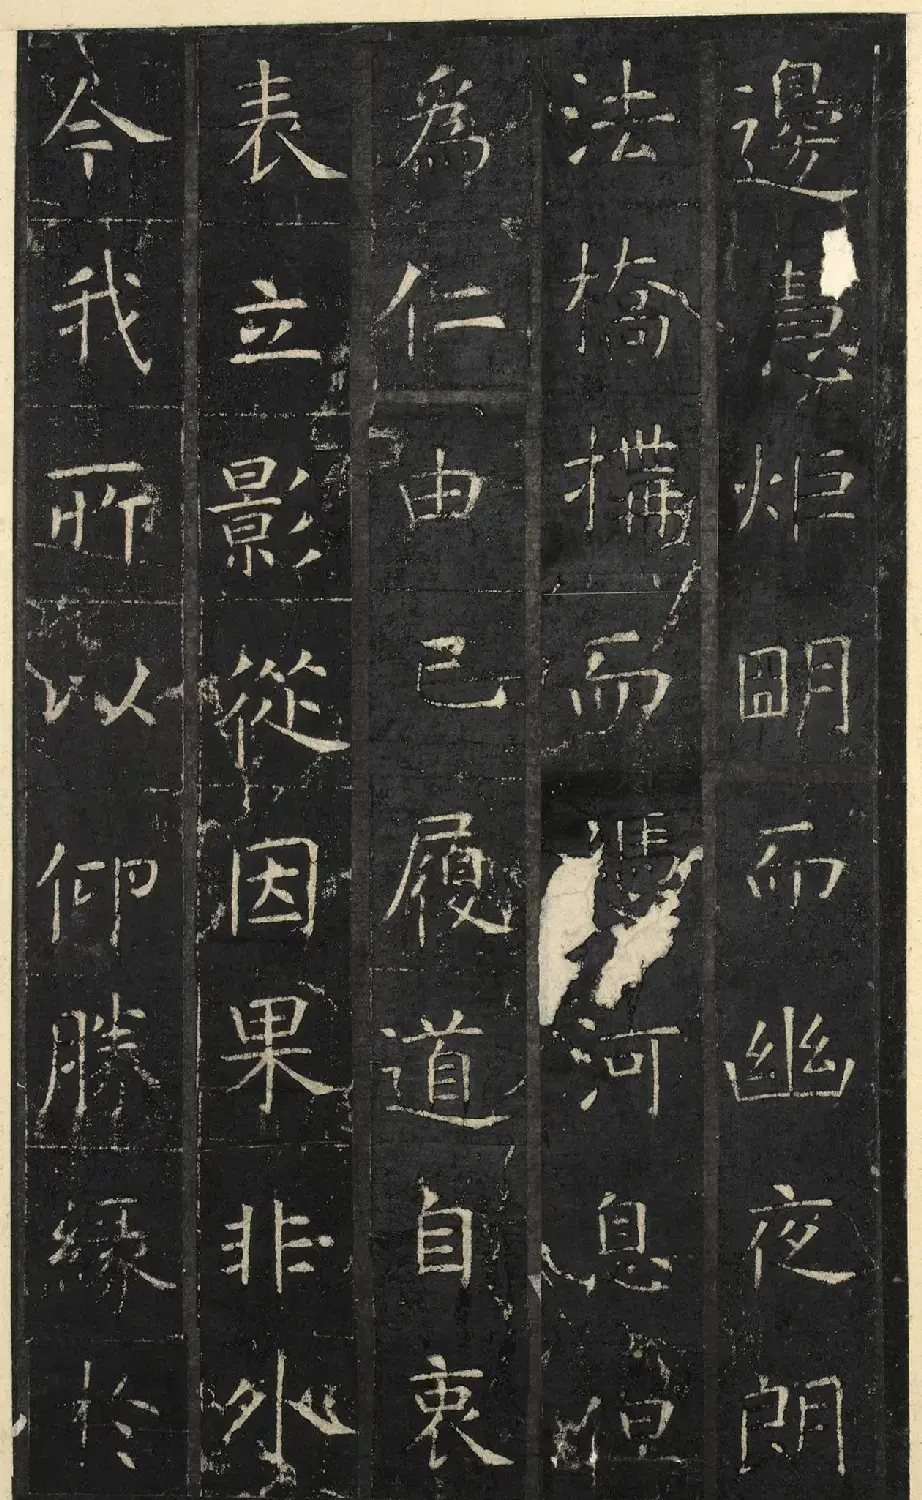 邊慧炬明而幽夜朗
法橋搆而馮河息但
為仁由己履道自衷
表立影從因果非外
今我所以仰勝緣於